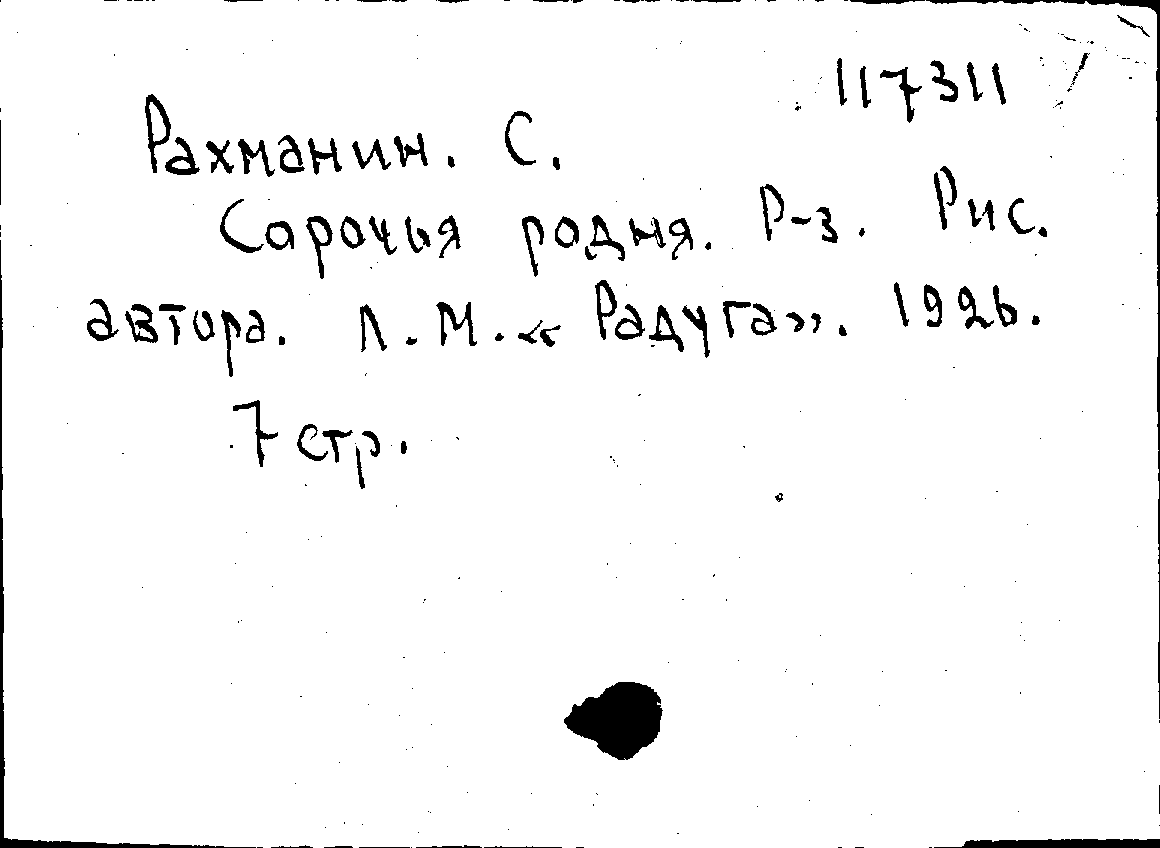 117311
Рахманин. С.
Сорочья родня. Р-з. Рис.
автора. Л. М. «Радуга». 1926.
7 стр.